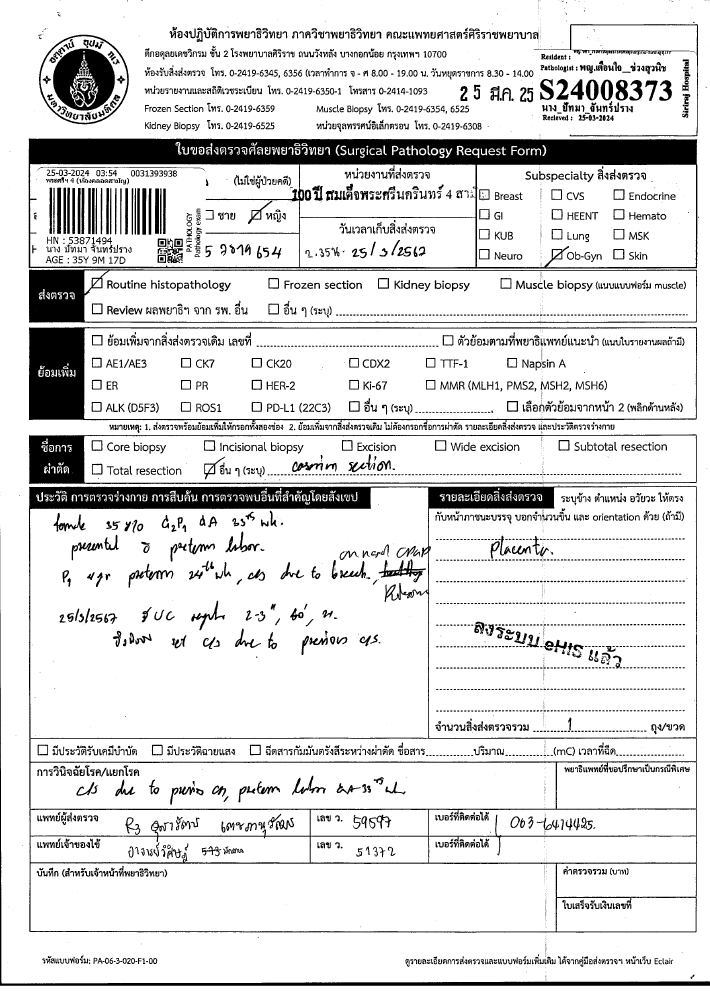 ห้องปฏิบัติการพยาธิวิทยา ภาควิชาพยาธิวิทยา คณะแพทยศาสตร์ศิริราชพยาบาล
ตึกอดุลยเดชวิกรม ชั้น 2 โรงพยาบาลศิริราช ถนนวังหลัง บางกอกน้อย กรุงเทพฯ 10700
ห้องรับสิ่งส่งตรวจ โทร. 0-2419-6345, 6356 (เวลาทำการ จ - ศ 8.00 - 19.00 น. วันหยุดราชการ 8.30 - 14.00
หน่วยรายงานและสถิติเวชระเบียน โทร. 0-2419-6350-1 โทรสาร 0-2414-1093
Frozen Section โทร. 0-2419-6359 Muscle Biopsy โทร. 0-2419-6354, 6525
Kidney Biopsy โทร. 0-2419-6525 หน่วยจุลทรรศน์อิเล็กตรอน โทร. 0-2419-6308
25 มี.ค. 25
Resident :
Pathologist : พญ.เตือนใจ ช่วงสุวนิช
S24008373
นาง ปัทมา จันทร์ปราง
Recieved : 25-03-2024
Siriraj Hospital
ใบขอส่งตรวจศัลยพยาธิวิทยา (Surgical Pathology Request Form)
25-03-2024 03:54 0031393938
HN : 53871494
นาง ปัทมา จันทร์ปราง
AGE : 35Y 9M 17D
PATHOLOGY
(ไม่ใช่ผู้ป่วยคดี)
ชาย หญิง
หน่วยงานที่ส่งตรวจ
100 ปี สมเด็จพระศรีนครินทร์ 4 สามั
วันเวลาเก็บสิ่งส่งตรวจ
25/3/2567
Subspecialty สิ่งส่งตรวจ
Breast CVS Endocrine
GI HEENT Hemato
KUB Lung MSK
Neuro Ob-Gyn Skin
ส่งตรวจ
Routine histopathology Frozen section Kidney biopsy Muscle biopsy (แนบแบบฟอร์ม muscle)
Review ผลพยาธิฯ จาก รพ. อื่น อื่น ๆ (ระบุ)
ย้อมเพิ่ม
ย้อมเพิ่มจากสิ่งส่งตรวจเดิม เลขที่ ตัวย้อมตามที่พยาธิแพทย์แนะนำ (แนบใบรายงานผลถ้ามี)
AE1/AE3 CK7 CK20 CDX2 TTF-1 Napsin A
ER PR HER-2 Ki-67 MMR (MLH1, PMS2, MSH2, MSH6)
ALK (D5F3) ROS1 PD-L1 (22C3) อื่น ๆ (ระบุ) เลือกตัวย้อมจากหน้า 2 (พลิกด้านหลัง)
หมายเหตุ: 1. ส่งตรวจพร้อมย้อมเพิ่มให้กรอกทั้งสองช่อง 2. ย้อมเพิ่มจากสิ่งส่งตรวจเดิม ไม่ต้องกรอกชื่อการผ่าตัด รายละเอียดสิ่งส่งตรวจ และประวัติตรวจร่างกาย
ชื่อการผ่าตัด
Core biopsy Incisional biopsy Excision Wide excision Subtotal resection
Total resection อื่น ๆ (ระบุ) section.
ประวัติ การตรวจร่างกาย การสืบค้น การตรวจพบอื่นที่สำคัญโดยสังเขป
female 35 G2P1 GA 33 wk.
preterm labor.
P1 preterm wk, c/s due to breech,
25/3/2567 UC 2-3", 60',
set c/s due to previous c/s.
รายละเอียดสิ่งส่งตรวจ ระบุข้าง ตำแหน่ง อวัยวะ ให้ตรง
กับหน้าภาชนะบรรจุ บอกจำนวนชิ้น และ orientation ด้วย (ถ้ามี)
Placenta.
ลงระบบ eHIS แล้ว
จำนวนสิ่งส่งตรวจรวม 1 ถุง/ขวด
มีประวัติรับเคมีบำบัด มีประวัติฉายแสง ฉีดสารกัมมันตรังสีระหว่างผ่าตัด ชื่อสาร ปริมาณ (mC) เวลาที่ฉีด
การวินิจฉัยโรค/แยกโรค
c/s due to previous c/s, preterm labor GA 33 wk
พยาธิแพทย์ที่ขอปรึกษาเป็นกรณีพิเศษ
แพทย์ผู้ส่งตรวจ R3 เลข ว. 59597 เบอร์ที่ติดต่อได้ 063-6474425
แพทย์เจ้าของไข้ เลข ว. 51372 เบอร์ที่ติดต่อได้
บันทึก (สำหรับเจ้าหน้าที่พยาธิวิทยา)
ค่าตรวจรวม (บาท)
ใบเสร็จรับเงินเลขที่
รหัสแบบฟอร์ม: PA-06-3-020-F1-00
ดูรายละเอียดการส่งตรวจและแบบฟอร์มเพิ่มเติม ได้จากคู่มือส่งตรวจฯ หน้าเว็บ Eclair